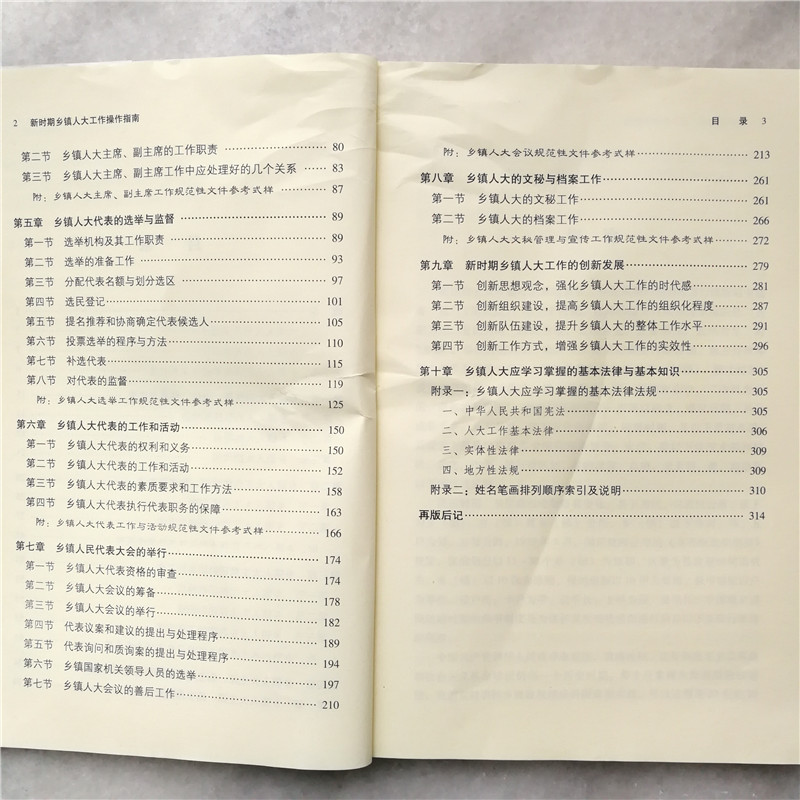 2 新时期乡镇人大工作操作指南
第二节 乡镇人大主席、副主席的工作职责 …… 80
第三节 乡镇人大主席、副主席工作中应处理好的几个关系 …… 83
附:乡镇人大主席、副主席工作规范性文件参考式样 …… 87
第五章 乡镇人大代表的选举与监督 …… 89
第一节 选举机构及其工作职责 …… 89
第二节 选举的准备工作 …… 93
第三节 分配代表名额与划分选区 …… 97
第四节 选民登记 …… 101
第五节 提名推荐和协商确定代表候选人 …… 105
第六节 投票选举的程序与方法 …… 110
第七节 补选代表 …… 115
第八节 对代表的监督 …… 119
附:乡镇人大选举工作规范性文件参考式样 …… 125
第六章 乡镇人大代表的工作和活动 …… 150
第一节 乡镇人大代表的权利和义务 …… 150
第二节 乡镇人大代表的工作和活动 …… 152
第三节 乡镇人大代表的素质要求和工作方法 …… 158
第四节 乡镇人大代表执行代表职务的保障 …… 163
附:乡镇人大代表工作与活动规范性文件参考式样 …… 166
第七章 乡镇人民代表大会的举行 …… 174
第一节 乡镇人大代表资格的审查 …… 174
第二节 乡镇人大会议的筹备 …… 178
第三节 乡镇人大会议的举行 …… 182
第四节 代表议案和建议的提出与处理程序 …… 189
第五节 代表询问和质询案的提出与处理程序 …… 194
第六节 乡镇国家机关领导人员的选举 …… 197
第七节 乡镇人大会议的善后工作 …… 210
目 录 3
附:乡镇人大会议规范性文件参考式样 …… 213
第八章 乡镇人大的文秘与档案工作 …… 261
第一节 乡镇人大的文秘工作 …… 261
第二节 乡镇人大的档案工作 …… 266
附:乡镇人大文秘管理与宣传工作规范性文件参考式样 …… 272
第九章 新时期乡镇人大工作的创新发展 …… 279
第一节 创新思想观念,强化乡镇人大工作的时代感 …… 281
第二节 创新组织建设,提高乡镇人大工作的组织化程度 …… 287
第三节 创新队伍建设,提升乡镇人大的整体工作水平 …… 291
第四节 创新工作方式,增强乡镇人大工作的实效性 …… 296
第十章 乡镇人大应学习掌握的基本法律与基本知识 …… 305
附录一:乡镇人大应学习掌握的基本法律法规 …… 305
一、中华人民共和国宪法 …… 305
二、人大工作基本法律 …… 306
三、实体性法律 …… 309
四、地方性法规 …… 309
附录二:姓名笔画排列顺序索引及说明 …… 310
再版后记 …… 314